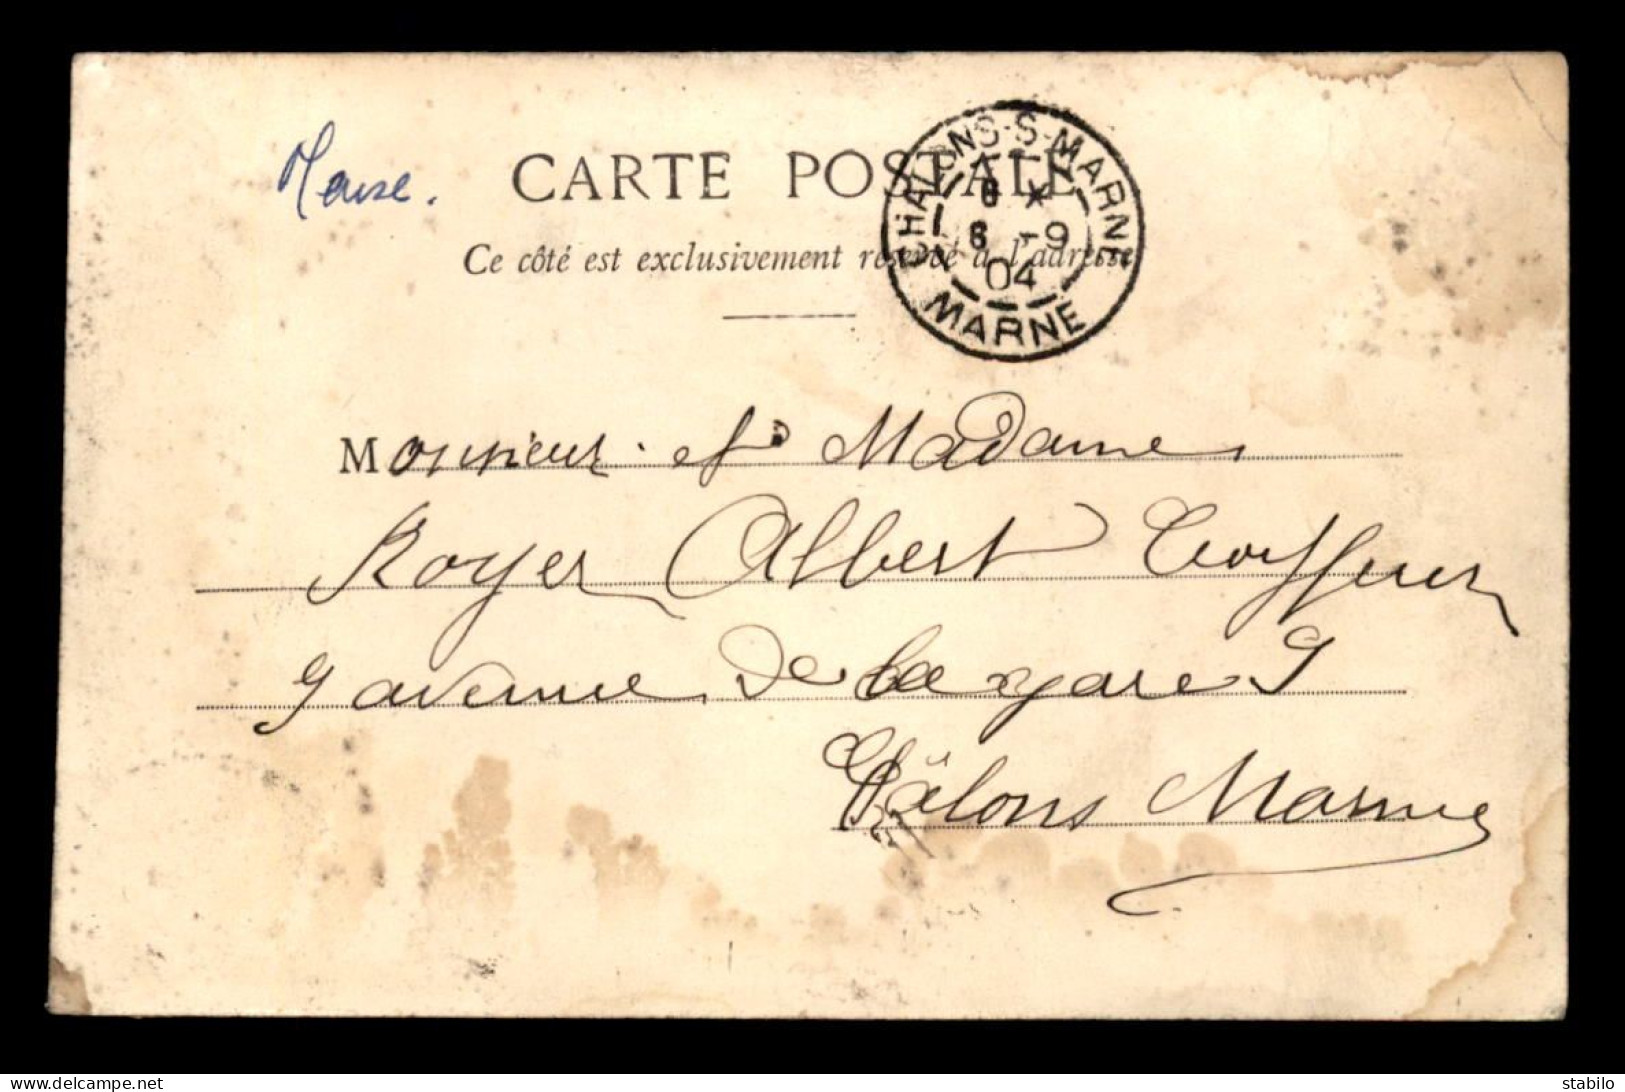 Meuse.
CARTE POSTALE
Ce côté est exclusivement réservé à l'adresse
CHALONS-S-MARNE
6 *
6 -9
04
MARNE
Monsieur et Madame
Royer Albert Coiffeur
9 avenue de la gare 9
Châlons Marne
delcampe.net
stabilo